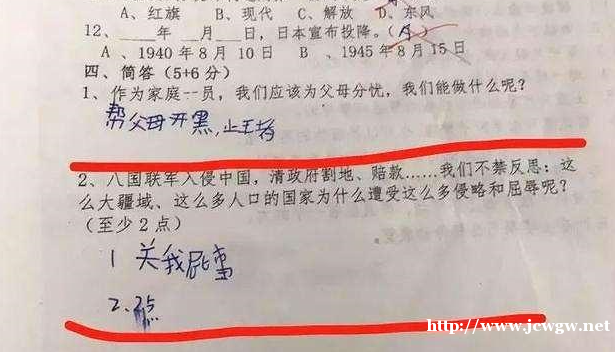 A、红旗 B、现代 C、解放 D、东风
12、____年 __月 ___日，日本宣布投降。（A）
A 、1940年8月 10日 B 、1945年8月15日
四、简答（5+6分）
1、作为家庭一员，我们应该为父母分忧，我们能做什么呢？
帮父母开黑，上王者
2、八国联军入侵中国，清政府割地、赔款……我们不禁反思：这
么大疆域、这么多人口的国家为什么遭受这么多侵略和屈辱呢？
（至少2点）
1 关我屁事
2、
http://www.jcwgw.net